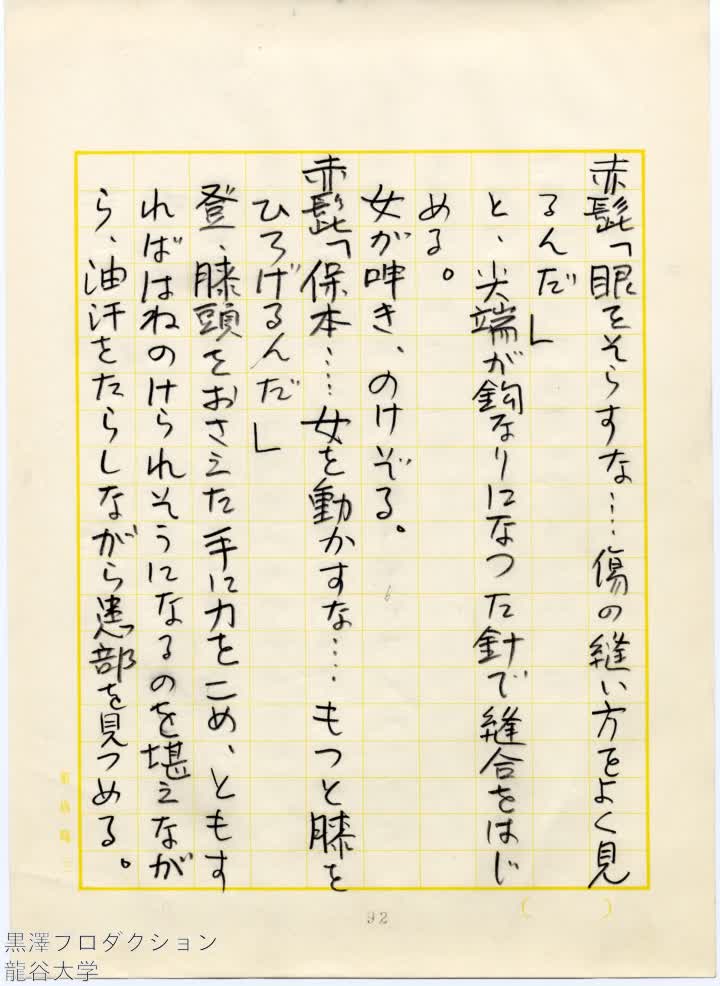 赤髭「眼をそらすな……傷の縫い方をよく見
るんだ」
と、尖端が鈎なりになつた針で縫合をはじ
める。
女が呻き、のけぞる。
赤髭「保本……女を動かすな……もつと膝を
ひろげるんだ」
登、膝頭をおさえた手に力をこめ、ともす
ればはねのけられそうになるのを堪えなが
ら、油汗をたらしながら患部を見つめる。
92
黒澤プロダクション
龍谷大学